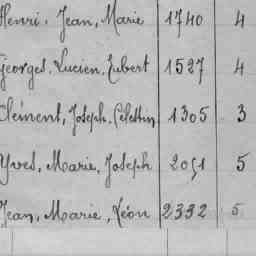 Henri, Jean, Marie 1740 4
Georges, Lucien, Hubert 1527 4
Clément, Joseph, Célestin 1305 3
Yves, Marie, Joseph 2051 5
Jean, Marie, Léon 2332 5